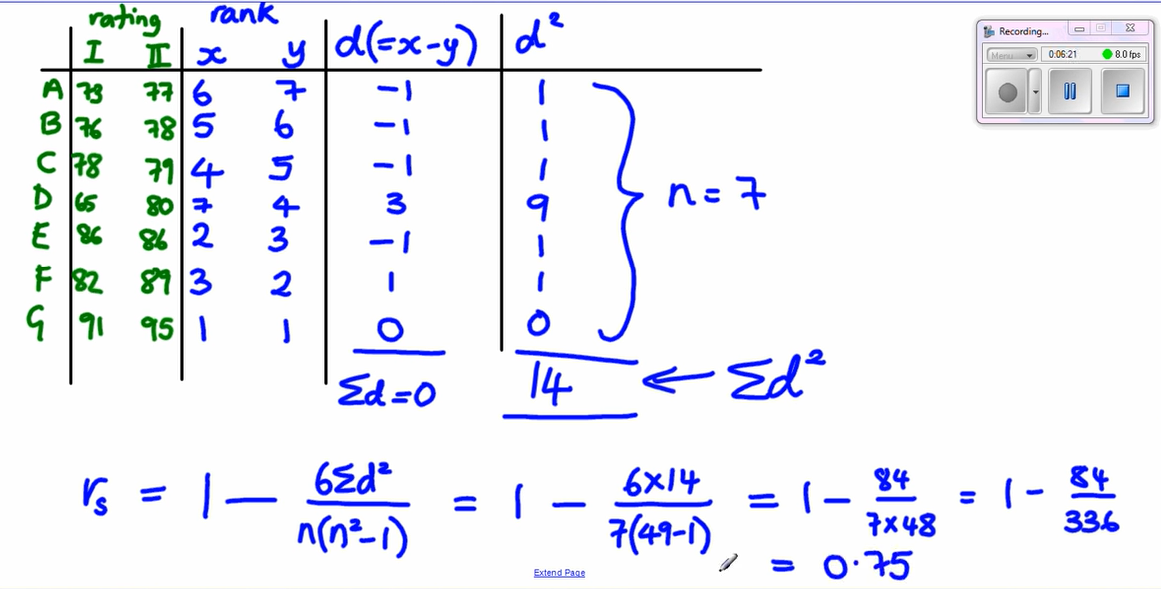 rating rank
I II x y d(=x-y) d²
A 73 77 6 7 -1 1
B 76 78 5 6 -1 1
C 78 79 4 5 -1 1
D 65 80 7 4 3 9
E 86 86 2 3 -1 1
F 82 89 3 2 1 1
G 91 95 1 1 0 0
n = 7
Σd = 0 14 ← Σd²
rₛ = 1 - 6Σd² / n(n²-1) = 1 - 6×14 / 7(49-1) = 1 - 84 / 7×48 = 1 - 84 / 336
= 0.75
Extend Page
Recording...
Menu 0:06:21 8.0 fps